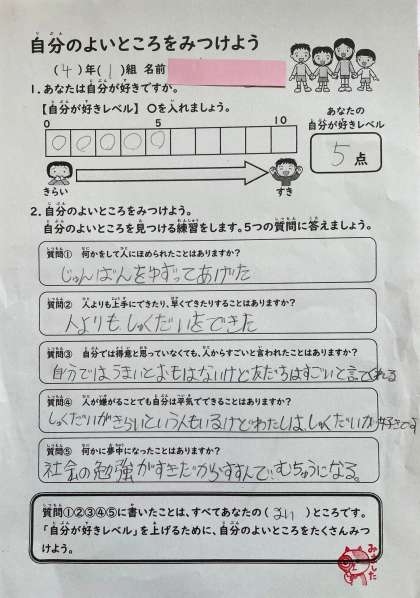 自分のよいところをみつけよう
(4)年(1)組 名前
1.あなたは自分が好きですか。
【自分が好きレベル】 〇を入れましょう。
5 10
〇〇〇〇〇
あなたの
自分が好きレベル
5点
きらい すき
2.自分のよいところをみつけよう。
自分のよいところを見つける練習をします。5つの質問に答えましょう。
質問① 何かをして人にほめられたことはありますか?
じゅんばんをゆずってあげた
質問② 人よりも上手にできたり、早くできたりすることはありますか?
人よりも しゅくだいをできた
質問③ 自分では得意と思っていなくても、人からすごいと言われたことはありますか?
自分ではうまいとおもはないけど友だちはすごいと言てくれる
質問④ 人が嫌がることでも自分は平気でできることはありますか?
しくだいがきらいという人もいるけどわたしは、しゅくだいが好きです
質問⑤ 何かに夢中になったことはありますか?
社会の勉強がすきだからすすんで、むちゅうになる。
質問①②③④⑤に書いたことは、すべてあなたの(よい)ところです。
「自分が好きレベル」を上げるために、自分のよいところをたくさんみつ
けよう。
みました